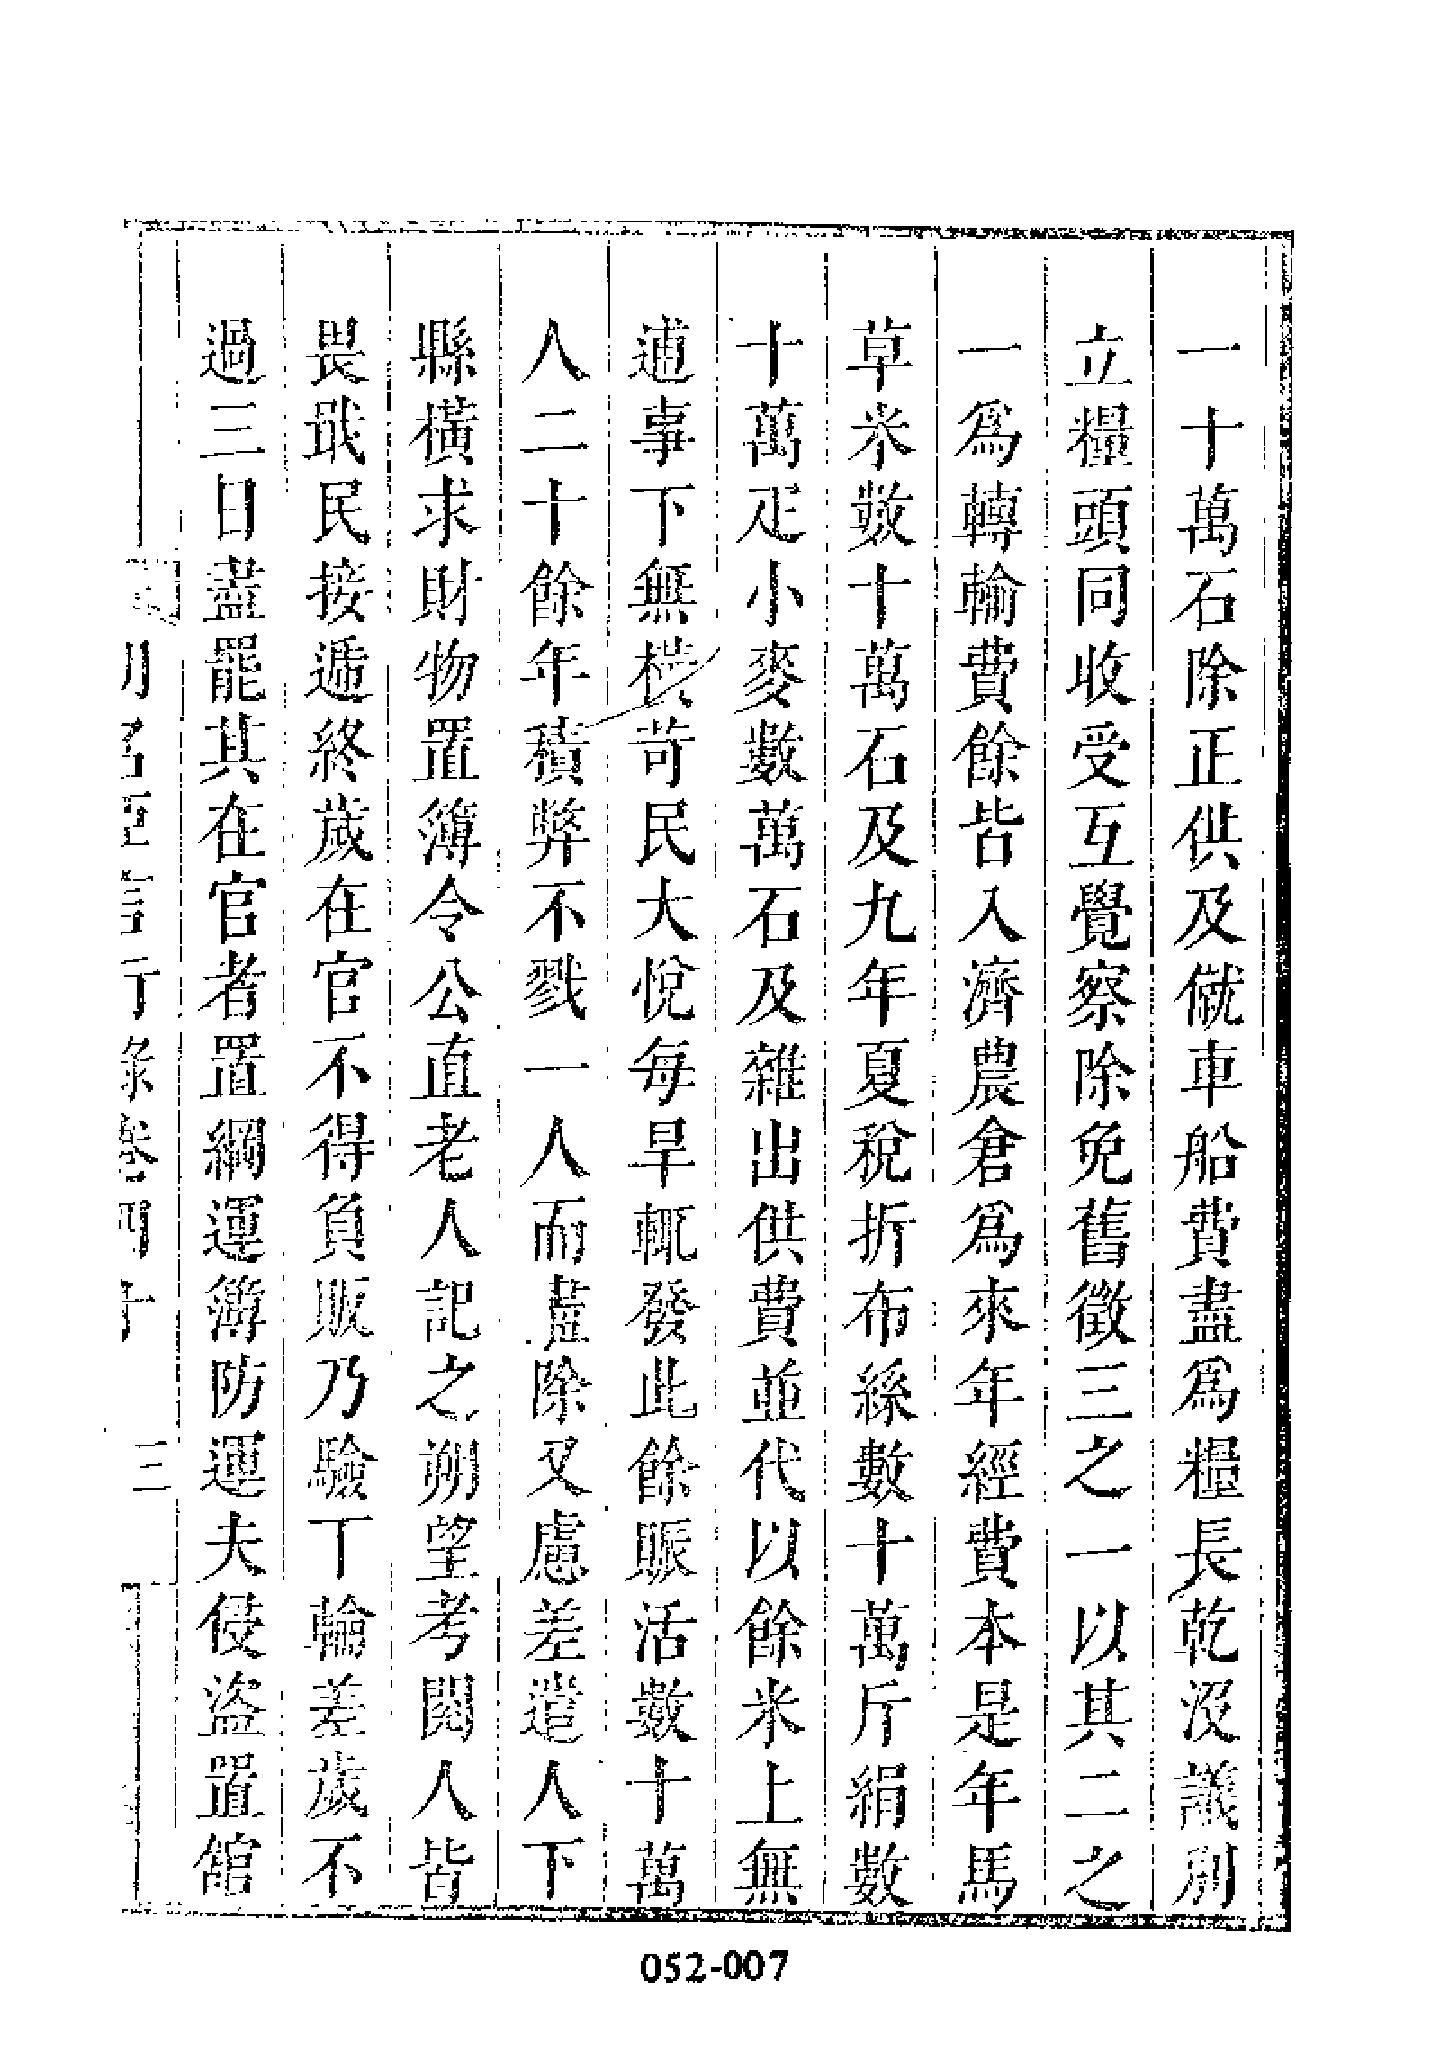 一十萬石除正供及僦車船費盡爲糧長乾沒議別
立糧頭同收受互覺察除免舊徵三之一以其二之
一爲轉輸費餘皆入濟農倉爲來年經費本是年馬
草米數十萬石及九年夏稅折布絲數十萬斤絹數
十萬疋小麥數萬石及雜出供費並代以餘米上無
逋事下無橫苛民大悅每旱輒發此餘賑活數十萬
人二十餘年積弊不戮一人而盡除又慮差遣人下
縣橫求財物置簿令公直老人記之朔望考閱人皆
畏戢民接遞終歲在官不得負販乃驗丁輪差歲不
過三日盡罷其在官者置綱運簿防運夫侵盜置館
明名臣言行錄卷四十 三
052-007